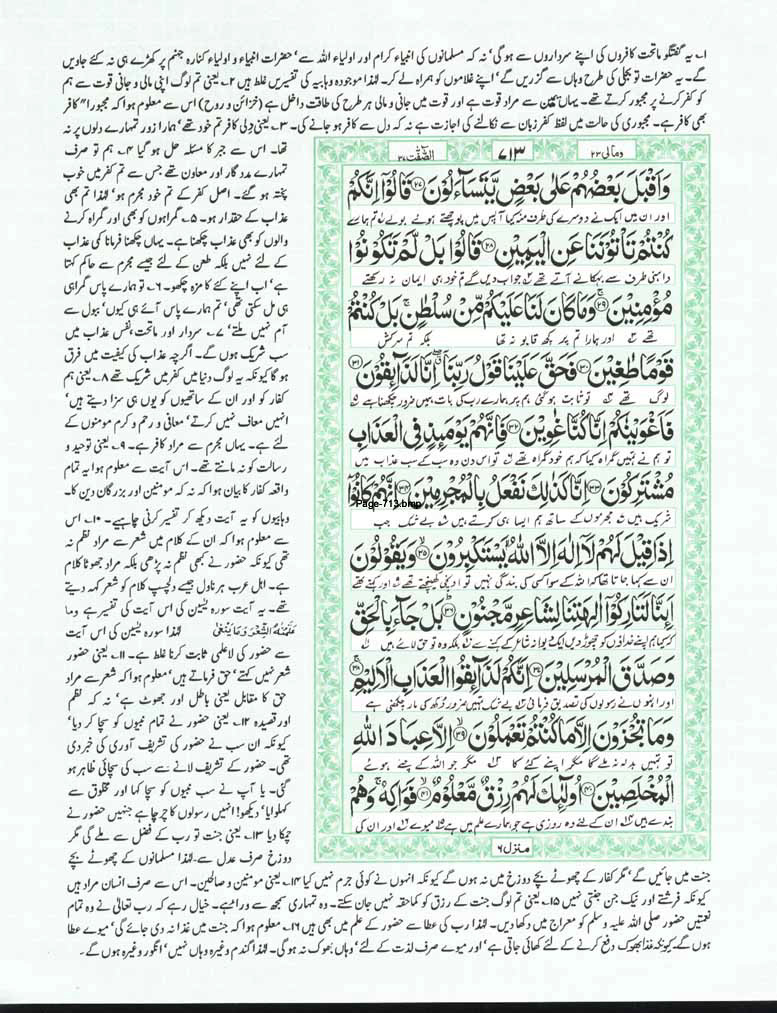 ۱۔ یہ گفتگو ماتحت کافروں کی اپنے سرداروں سے ہو گی، نہ کہ مسلمانوں کی انبیاء کرام اور اولیاء اللہ سے، حضرات انبیاء و اولیاء کنارہ جہنم پر کھڑے ہی نہ کئے جاویں
گے۔ یہ حضرات تو بجلی کی طرح وہاں سے گزریں گے، اپنے غلاموں کو ہمراہ لے کر۔ لہٰذا موجودہ وہابیہ کی تفسیریں غلط ہیں ۲۔ یعنی تم لوگ اپنی مالی و جانی قوت سے ہم
کو کفر کرنے پر مجبور کرتے تھے۔ یہاں یمین سے مراد قوت ہے اور قوت میں جانی و مالی ہر طرح کی طاقت داخل ہے (خزائن و روح) اس سے معلوم ہوا کہ مجبوراً کافر
بھی کافر ہے۔ مجبوری کی حالت میں لفظ کفر زبان سے نکالنے کی اجازت ہے نہ کہ دل سے کافر ہو جانے کی۔ ۳۔ یعنی دلی کافر تم خود تھے، ہمارا زور تمہارے دلوں پر نہ
تھا۔ اس سے جبر کا مسئلہ حل ہو گیا ۴۔ ہم تو صرف
تمہارے مددگار اور معاون تھے جس سے تم کفر میں خوب
پختہ ہو گئے۔ اصل کفر کے تم خود مجرم ہو، لہٰذا تم بھی
عذاب کے حقدار ہو۔ ۵۔ گمراہوں کو بھی اور گمراہ کرنے
والوں کو بھی عذاب چکھنا ہے۔ یہاں چکھنا فرمانا کمی عذاب
کے لئے نہیں بلکہ طعن کے لئے جیسے مجرم سے حاکم کہتا
ہے، اب اپنے کئے کا مزہ چکھو۔ ۶۔ تو ہمارے پاس گمراہی
ہی مل سکتی تھی، تم ہمارے پاس آئے ہی کیوں، ببول سے
آم نہیں ملتے، ۷۔ سردار اور ماتحت، نفس عذاب میں
سب شریک ہوں گے۔ اگرچہ عذاب کی کیفیت میں فرق
ہو گا کیونکہ یہ لوگ دنیا میں کفر میں شریک تھے ۸۔ یعنی ہم
کفار کو اور ان کے ساتھیوں کو یوں ہی سزا دیتے ہیں،
انہیں معاف نہیں کرتے، معافی و رحم و کرم مومنوں کے
لئے ہے۔ یہاں مجرم سے مراد کافر ہے۔ ۹۔ یعنی توحید و
رسالت کو نہ مانتے تھے۔ اس آیت سے معلوم ہوا یہ تمام
واقعہ کفار کا بیان ہوا کہ نہ کہ مومنین اور بزرگان دین کا۔
وہابیوں کو یہ آیت دیکھ کر تفسیر کرنی چاہیے۔ ۱۰۔ اس
سے معلوم ہوا کہ ان کے کلام میں شعر سے مراد نظم نہ
تھی کیونکہ حضور نے کبھی نظم نہ پڑھی بلکہ مراد جھوٹا کلام
ہے۔ اہل عرب ہر ناول جیسے دلچسپ کلام کو شعر کہہ دیتے
تھے۔ یہ آیت سورہ یٰسین کی اس آیت کی تفسیر ہے وما
علمنٰہ الشعر وما ینبغی لہٰذا سورہ یٰسین کی اس آیت
سے حضور کی لاعلمی ثابت کرنا غلط ہے۔ ۱۱۔ یعنی حضور
شعر نہیں کہتے، حق فرماتے ہیں، معلوم ہوا کہ شعر سے مراد
حق کا مقابل یعنی باطل اور جھوٹ ہے، نہ کہ نظم
اور قصیدہ ۱۲۔ یعنی حضور نے تمام نبیوں کو سچا کر دیا،
کیونکہ ان سب نے حضور کی تشریف آوری کی خبر دی
تھی۔ حضور کے تشریف لانے سے سب کی سچائی ظاہر ہو
گئی۔ یا آپ نے سب نبیوں کو سچا کہا اور مخلوق سے
کہلوایا، دیکھو! انہیں رسولوں کا چرچا ہے جنہیں حضور نے
چمکا دیا ۱۳۔ یعنی جنت تو رب کے فضل سے ملے گی مگر
دوزخ صرف عدل سے۔ لہٰذا مسلمانوں کے چھوٹے بچے
ومالی ۲۳
۷۱۳
الصّٰفّٰت ۳۷
وَاَقْبَلَ بَعْضُهُمْ عَلٰى بَعْضٍ يَّتَسَآءَلُوْنَ ۝۲۷ قَالُوْٓا اِنَّكُمْ
اور ان میں ایک نے دوسرے کی طرف منہ کیا آپس میں پوچھتے ہوئے بولے تم ہمارے
كُنْتُمْ تَاْتُوْنَنَا عَنِ الْيَمِيْنِ ۝۲۸ قَالُوْا بَلْ لَّمْ تَكُوْنُوْا
داہنی طرف سے بہکانے آتے تھے جواب دیں گے تم خود ہی ایمان نہ رکھتے
مُؤْمِنِيْنَ ۝۲۹ وَمَا كَانَ لَنَا عَلَيْكُمْ مِّنْ سُلْطٰنٍ ۚ بَلْ كُنْتُمْ
تھے اور ہمارا تم پر کچھ قابو نہ تھا بلکہ تم سرکش
قَوْمًا طٰغِيْنَ ۝۳۰ فَحَقَّ عَلَيْنَا قَوْلُ رَبِّنَآ ۖ اِنَّا لَذَآئِقُوْنَ ۝۳۱
لوگ تھے تو ثابت ہو گئی ہم پر ہمارے رب کی بات ہمیں ضرور چکھنا ہے
فَاَغْوَيْنٰكُمْ اِنَّا كُنَّا غٰوِيْنَ ۝۳۲ فَاِنَّهُمْ يَوْمَئِذٍ فِى الْعَذَابِ
تو ہم نے تمہیں گمراہ کیا کہ ہم خود گمراہ تھے تو اس دن وہ سب کے سب عذاب میں
مُشْتَرِكُوْنَ ۝۳۳ اِنَّا كَذٰلِكَ نَفْعَلُ بِالْمُجْرِمِيْنَ ۝۳۴ اِنَّهُمْ كَانُوْٓا
Page-713.bmp
شریک ہیں مجرموں کے ساتھ ہم ایسا ہی کرتے ہیں بے شک جب
اِذَا قِيْلَ لَهُمْ لَآ اِلٰهَ اِلَّا اللّٰهُ يَسْتَكْبِرُوْنَ ۝۳۵ وَيَقُوْلُوْنَ
ان سے کہا جاتا تھا کہ اللہ کے سوا کسی کی بندگی نہیں تو اونچی کھینچتے تھے اور کہتے تھے
اَئِنَّا لَتَارِكُوْٓا اٰلِهَتِنَا لِشَاعِرٍ مَّجْنُوْنٍ ۝۳۶ بَلْ جَآءَ بِالْحَقِّ
کیا ہم اپنے خداؤں کو چھوڑ دیں ایک دیوانہ شاعر کے کہنے سے بلکہ وہ تو حق لائے ہیں
وَصَدَّقَ الْمُرْسَلِيْنَ ۝۳۷ اِنَّكُمْ لَذَآئِقُوا الْعَذَابِ الْاَلِيْمِ ۝۳۸
اور انہوں نے رسولوں کی تصدیق فرمائی بے شک تمہیں ضرور دکھ کی مار چکھنی ہے
وَمَا تُجْزَوْنَ اِلَّا مَا كُنْتُمْ تَعْمَلُوْنَ ۝۳۹ اِلَّا عِبَادَ اللّٰهِ
تو تمہیں بدلہ نہ ملے گا مگر اپنے کئے کا مگر جو اللہ کے چنے ہوئے
الْمُخْلَصِيْنَ ۝۴۰ اُولٰٓئِكَ لَهُمْ رِزْقٌ مَّعْلُوْمٌ ۝۴۱ فَوَاكِهُ ۚ وَهُمْ
بندے ہیں ان کے لئے وہ روزی ہے جو ہمارے علم میں ہے میوے اور ان کی
منزل ۶
جنت میں جائیں گے، مگر کفار کے چھوٹے بچے دوزخ میں نہ ہوں گے کیونکہ انہوں نے کوئی جرم نہیں کیا ۱۴۔ یعنی مومنین و صالحین۔ اس سے صرف انسان مراد ہیں
کیونکہ فرشتے اور نیک جن جنتی نہیں ۱۵۔ یعنی تم لوگ جنت کے رزق کو کماحقہ نہیں جان سکتے۔ وہ تمہاری سمجھ سے وراء ہے۔ خیال رہے کہ رب تعالٰی نے وہ تمام
نعمتیں حضور صلی اللہ علیہ وسلم کو معراج میں دکھا دیں۔ لہٰذا رب کی عطا سے حضور کے علم میں بھی ہیں ۱۶۔ معلوم ہوا کہ جنت میں غذا نہ دی جائے گی، میوے عطا
ہوں گے۔ کیونکہ غذا بھوک دفع کرنے کے لئے کھائی جاتی ہے، اور میوے صرف لذت کے لئے، وہاں بھوک نہ ہو گی۔ لہٰذا گندم وغیرہ وہاں نہیں، انگور وغیرہ ہوں گے۔